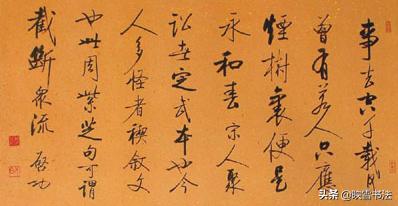 事去千載
曾有若人只應
煙樹裏便是
永和春宋人聚
訟在定武本也今
人多怪者禊敘文
也此周紫芝句可謂
截斷衆流 啓功
头条@映雪书法